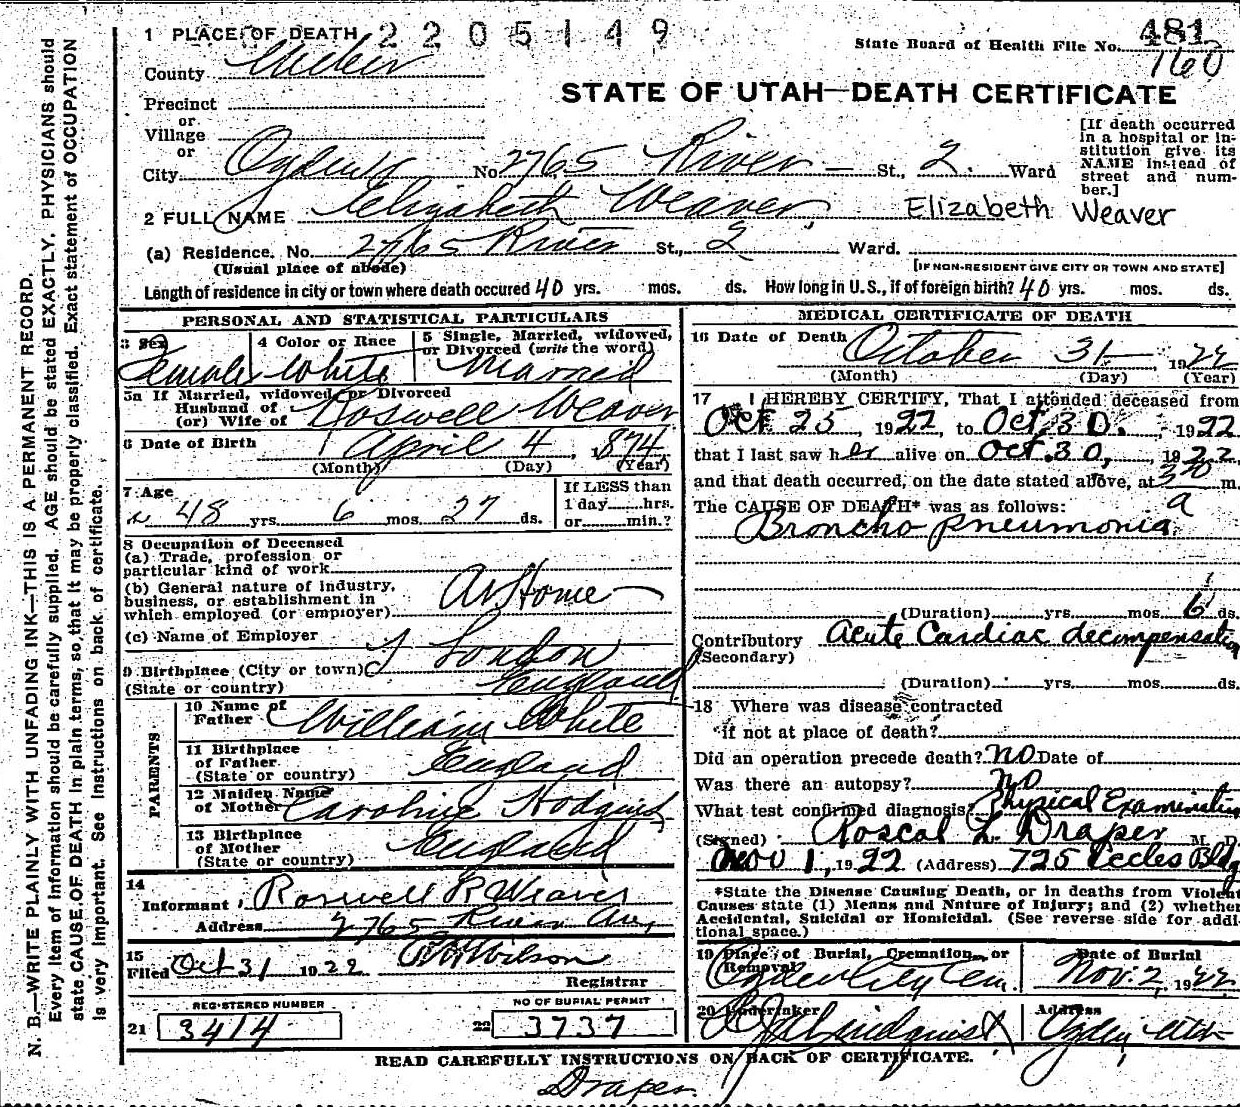 1 PLACE OF DEATH 2 2 0 5 1 4 9
State Board of Health File No. 481
160
County Weber
STATE OF UTAH—DEATH CERTIFICATE
Precinct
or
Village
or
City Ogden No. 2765 River — St., 2. Ward
[If death occurred in a hospital or institution give its NAME instead of street and number.]
2 FULL NAME Elizabeth Weaver, Elizabeth Weaver
(a) Residence. No. 2765 River St., 2 Ward.
(Usual place of abode) [IF NON-RESIDENT GIVE CITY OR TOWN AND STATE]
Length of residence in city or town where death occured 40 yrs. mos. ds. How long in U.S., if of foreign birth? 40 yrs. mos. ds.
PERSONAL AND STATISTICAL PARTICULARS
3 Sex 4 Color or Race 5 Single, Married, widowed,
or Divorced (write the word)
Female White Married
5a If Married, widowed, or Divorced
Husband of
(or) Wife of Roswell Weaver
6 Date of Birth April 4, 1874
(Month) (Day) (Year)
7 Age If LESS than
48 yrs. 6 mos. 27 ds. 1 day hrs.
or min.?
8 Occupation of Deceased
(a) Trade, profession or
particular kind of work
(b) General nature of industry,
business, or establishment in
which employed (or employer) At Home
(c) Name of Employer
9 Birthplace (City or town) London
(State or country) England
PARENTS
10 Name of
Father William White
11 Birthplace
of Father
(State or country) England
12 Maiden Name
of Mother Caroline Hodgins
13 Birthplace
of Mother
(State or country) England
14
Informant Roswell R Weaver
Address 2765 River Av,
15
Filed Oct 31 1922 Wilson
Registrar
REGISTERED NUMBER NO OF BURIAL PERMIT
21 3414 22 3737
MEDICAL CERTIFICATE OF DEATH
16 Date of Death October 31— 1922
(Month) (Day) (Year)
17 I HEREBY CERTIFY, That I attended deceased from
Oct 25, 1922, to Oct. 30., 1922
that I last saw her alive on Oct. 30, 1922
and that death occurred, on the date stated above, at 3 30 m.
The CAUSE OF DEATH* was as follows: a
Broncho pneumonia
(Duration) yrs. mos. 6 ds.
Contributory Acute Cardiac decompensation
(Secondary)
(Duration) yrs. mos. ds.
18 Where was disease contracted
if not at place of death?
Did an operation precede death? NO Date of
Was there an autopsy? no
What test confirmed diagnosis? Physical Examination
(Signed) Roscal L. Draper M. D.
Nov 1, 1922 (Address) 725 Eccles Bldg
*State the Disease Causing Death, or in deaths from Violent
Causes state (1) Means and Nature of Injury; and (2) whether
Accidental, Suicidal or Homicidal. (See reverse side for addi-
tional space.)
19 Place of Burial, Cremation, or Date of Burial
Removal
Ogden City Cem. Nov. 2, 1922
20 Undertaker Address
Lindquist Ogden Utah
READ CAREFULLY INSTRUCTIONS ON BACK OF CERTIFICATE.
Draper.
N. B.—WRITE PLAINLY WITH UNFADING INK—THIS IS A PERMANENT RECORD.
Every item of information should be carefully supplied. AGE should be stated EXACTLY. PHYSICIANS should
state CAUSE OF DEATH in plain terms, so that it may be properly classified. Exact statement of OCCUPATION
is very important. See instructions on back of certificate.